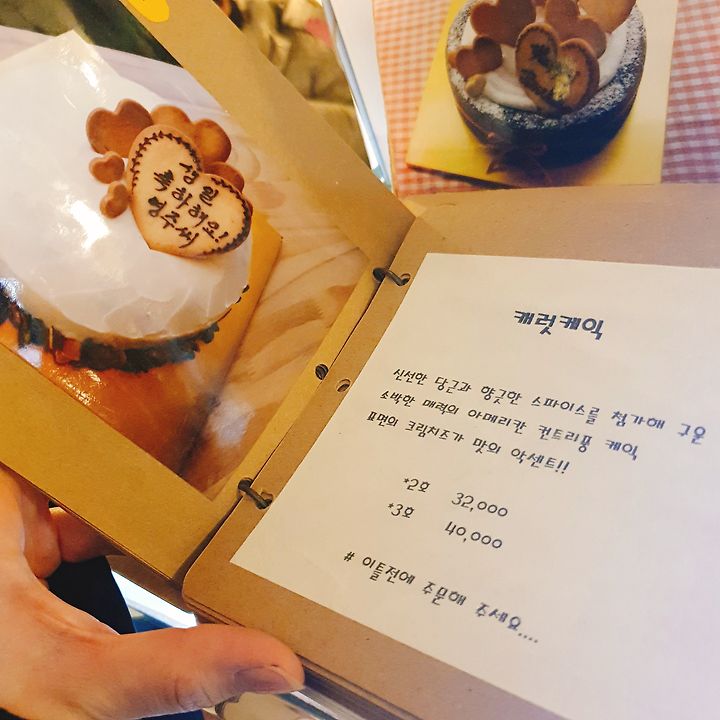 생일
축하해요!
영주씨
캐럿케익
신선한 당근과 향긋한 스파이스를 첨가해 구운
소박한 매력의 아메리칸 컨트리풍 케익
표면의 크림치즈가 맛의 악센트!!
*2호 32,000
*3호 40,000
# 이틀전에 주문해 주세요....